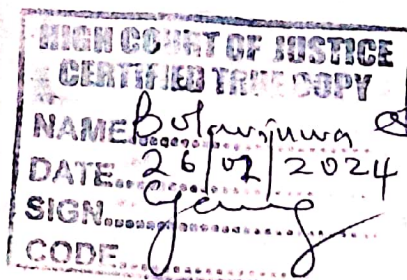 HIGH COURT OF JUSTICE
CERTIFIED TRUE COPY
NAME
DATE.. 26/02/2024
SIGN
CODE